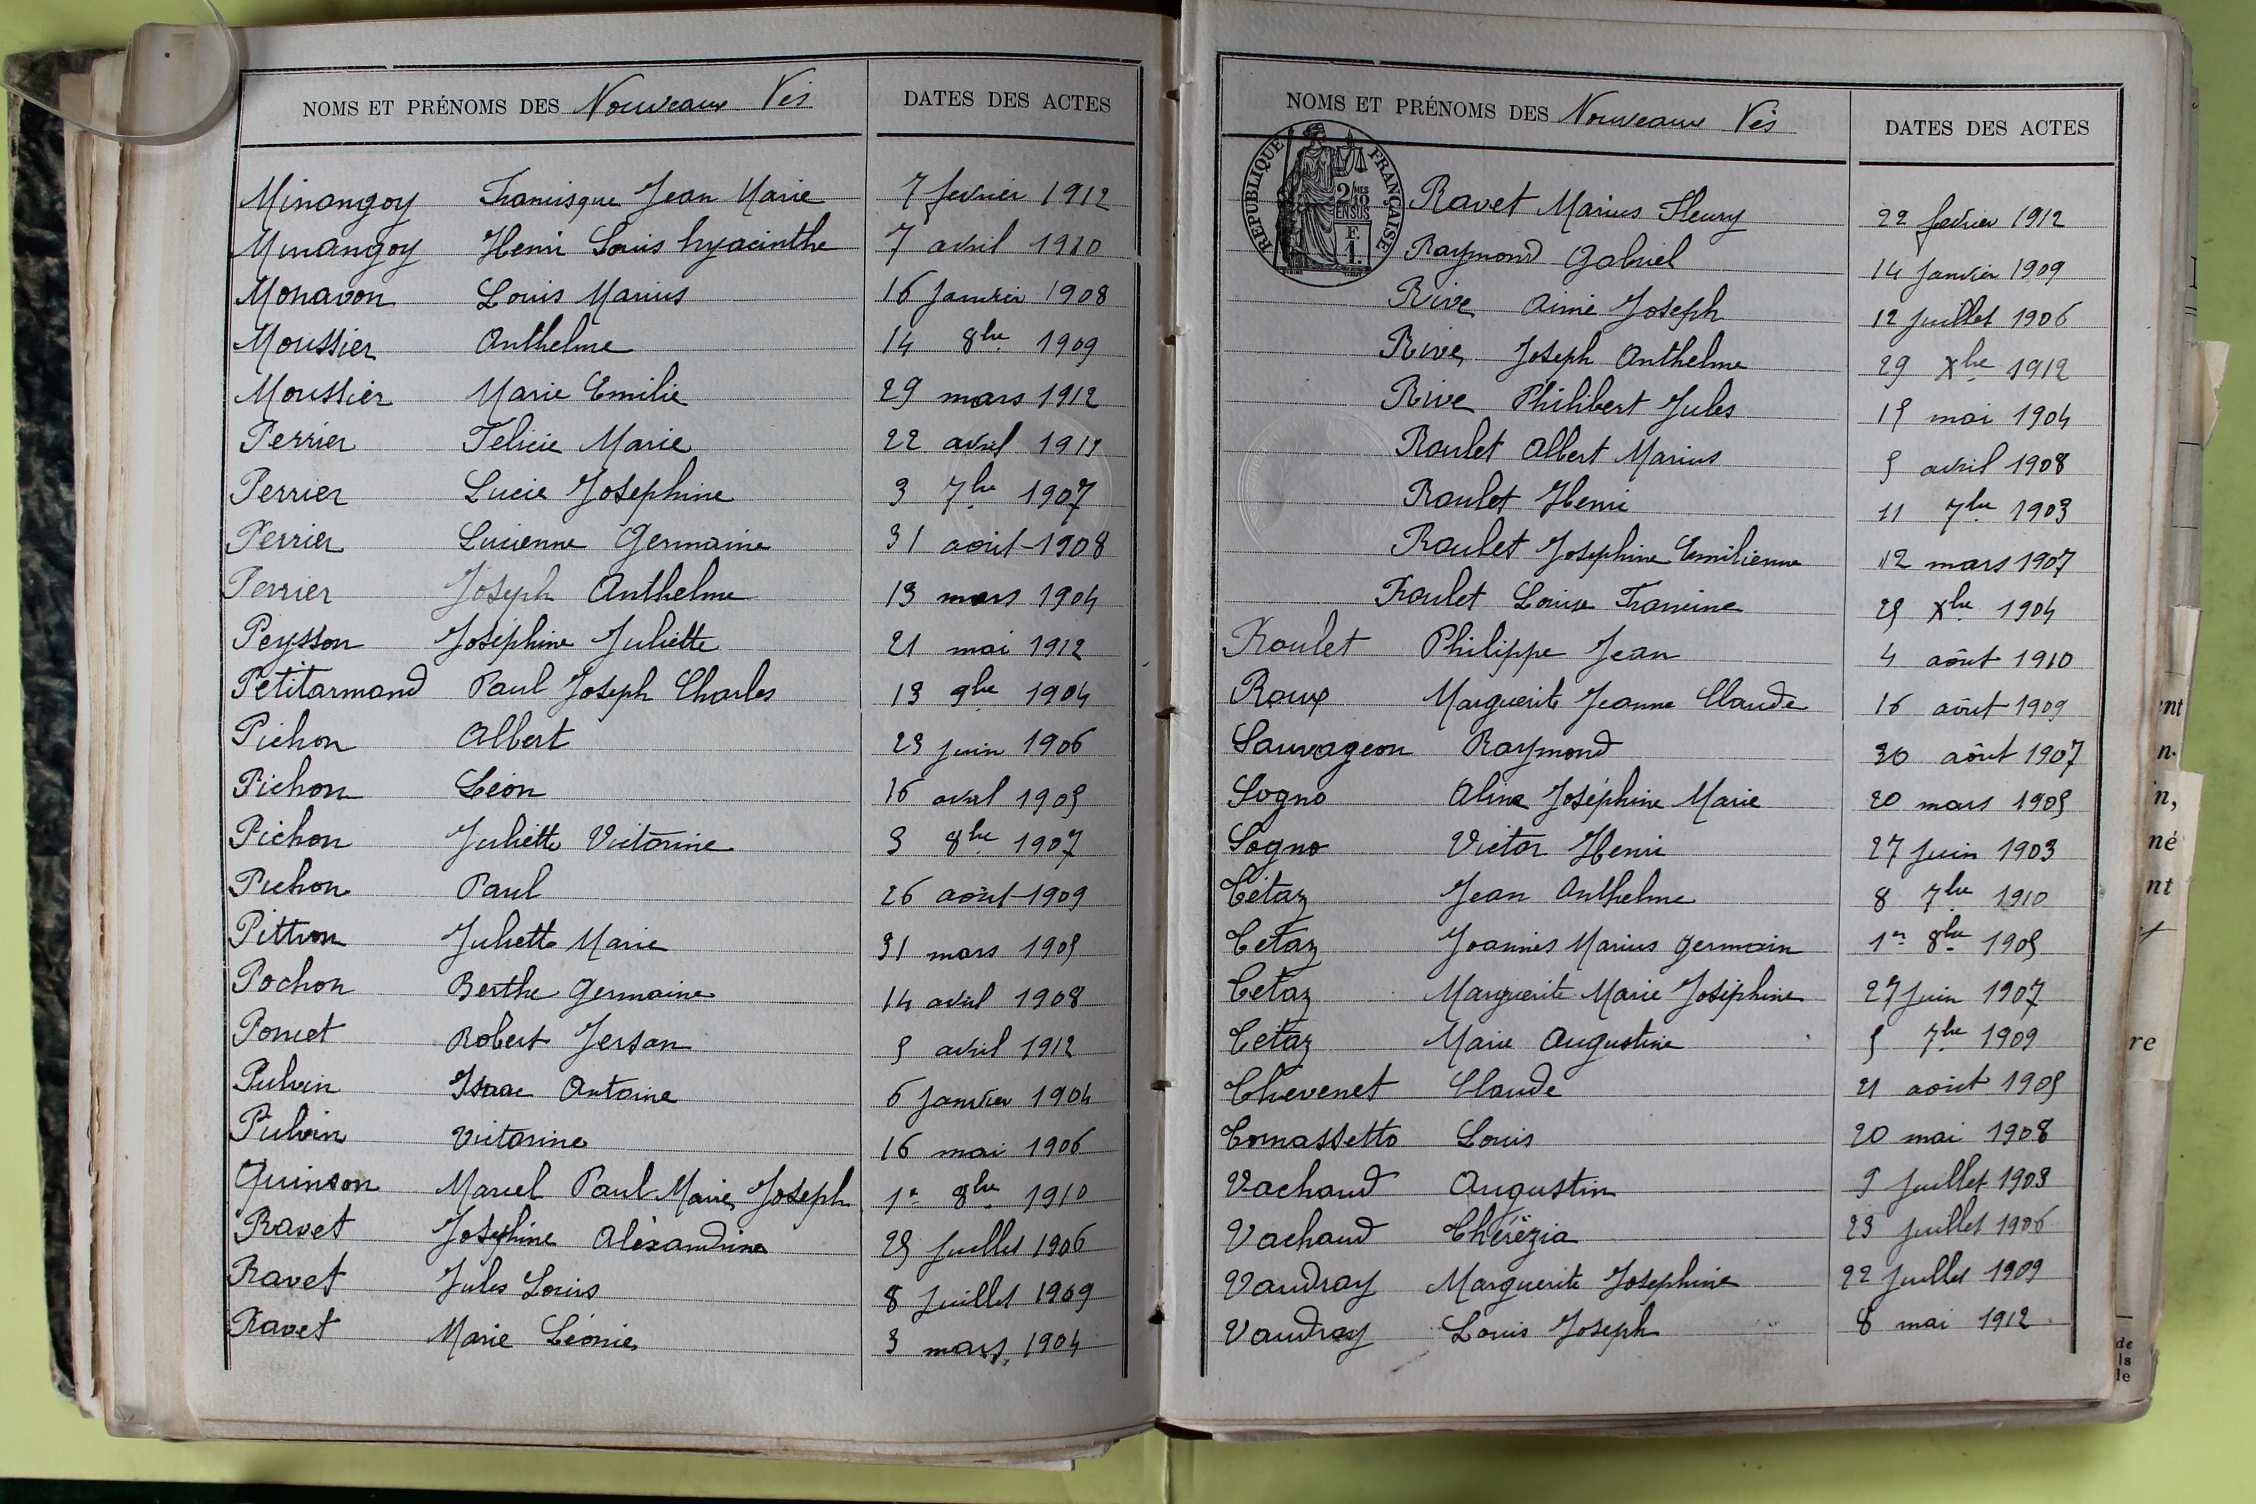 NOMS ET PRÉNOMS DES Nouveaux Nés DATES DES ACTES
Minangoy Francisque Jean Marie 7 fevrier 1912
Minangoy Henri Louis hyacinthe 7 avril 1910
Monavon Louis Marius 16 Janvier 1908
Moussier Anthelme 14 8bre 1909
Moussier Marie Emilie 29 mars 1912
Perrier Felicie Marie 22 avril 1911
Perrier Lucie Josephine 3 7bre 1907
Perrier Lucienne Germaine 31 août 1908
Perrier Joseph Anthelme 13 mars 1904
Peysson Joséphine Juliette 21 mai 1912
Petitarmand Paul Joseph Charles 13 9bre 1904
Pichon Albert 23 juin 1906
Pichon Léon 16 avril 1905
Pichon Juliette Victorine 3 8bre 1907
Pichon Paul 26 août 1909
Pittion Juliette Marie 31 mars 1905
Pochon Berthe Germaine 14 avril 1908
Poncet Robert Jersan 5 avril 1912
Pulvin Isaac Antoine 6 Janvier 1904
Pulvin Victorine 16 mai 1906
Quinson Marcel Paul Marie Joseph 1er 8bre 1910
Ravet Joséphine Aléxandrine 25 Juillet 1906
Ravet Jules Louis 8 Juillet 1909
Ravet Marie Léonie 3 mars 1904
NOMS ET PRÉNOMS DES Nouveaux Nés DATES DES ACTES
RÉPUBLIQUE FRANÇAISE
2/10MES
EN SUS
F.
1.
Ravet Marius Fleury 22 fevrier 1912
Raymond Gabriel 14 Janvier 1909
Rive Aimé Joseph 12 Juillet 1906
Rive Joseph Anthelme 29 Xbre 1912
Rive Philibert Jules 15 mai 1904
Roulet Albert Marius 5 avril 1908
Roulet Henri 11 7bre 1903
Roulet Joséphine Emilienne 12 mars 1907
Roulet Louise Francine 25 Xbre 1904
Roulet Philippe Jean 4 août 1910
Roux Marguerite Jeanne Claude 16 août 1909
Sauvageon Raymond 30 août 1907
Sogno Aline Joséphine Marie 20 mars 1905
Sogno Victor Henri 27 Juin 1903
Tétaz Jean Anthelme 8 7bre 1910
Tétaz Joannès Marius Germain 1er 8bre 1905
Tétaz Marguerite Marie Joséphine 27 Juin 1907
Tétaz Marie Augustine 5 7bre 1909
Thevenet Claude 21 août 1905
Tomassetto Louis 20 mai 1908
Vachaud Augustin 9 Juillet 1903
Vachaud Thérézia 23 Juillet 1906
Vaudray Marguerite Josephine 22 Juillet 1909
Vaudray Louis Joseph 8 mai 1912
nt
n.
n,
né
nt
re
de
ls
le